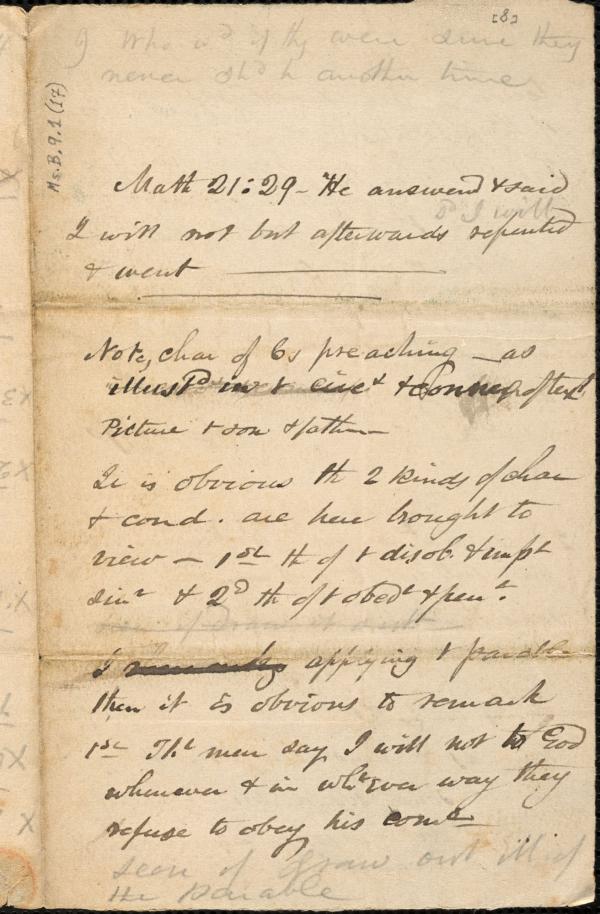 [8]
I Who wd if thy were sure they
never shd h another time
Ms. B. 9. 1 (17)
Math 21:29 - He answerd & said
I will
I will not but afterwards repented
& went
Note, char of Cs preaching - as
illustd in t circt & connex of text
Picture t son & father
It is obvious th 2 kinds of char
& cond. are here brought to
view - 1st th of t disob. & impt
sinr & 2d th of t obedt & pent.
I remark applying t parable
then it is obvious to remark
1st Tht men say I will not to God
whenever & in whtever way they
refuse to obey his comd
draw out ill of
the parable